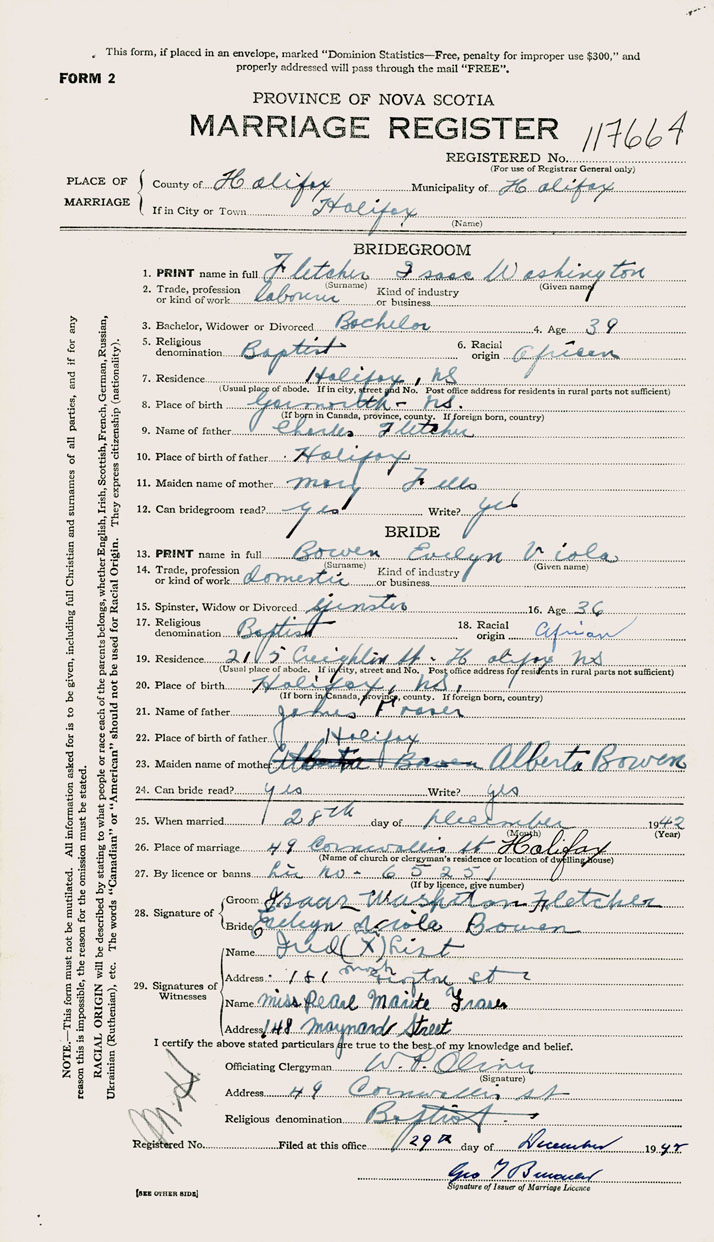 This form, if placed in an envelope, marked "Dominion Statistics—Free, penalty for improper use $300," and
properly addressed will pass through the mail "FREE".
FORM 2
PROVINCE OF NOVA SCOTIA
MARRIAGE REGISTER
117664
REGISTERED No.
(For use of Registrar General only)
PLACE OF MARRIAGE
County of Halifax Municipality of Halifax
If in City or Town Halifax
(Name)
BRIDEGROOM
1. PRINT name in full Fletcher Isaac Washington
(Surname) (Given name)
2. Trade, profession or kind of work labourer Kind of industry or business
3. Bachelor, Widower or Divorced Bachelor 4. Age 39
5. Religious denomination Baptist 6. Racial origin African
7. Residence Halifax, NS
(Usual place of abode. If in city, street and No. Post office address for residents in rural parts not sufficient)
8. Place of birth NS.
(If born in Canada, province, county. If foreign born, country)
9. Name of father Charles Fletcher
10. Place of birth of father Halifax
11. Maiden name of mother Mary Fells
12. Can bridegroom read? yes Write? yes
BRIDE
13. PRINT name in full Bowen Evelyn Viola
(Surname) (Given name)
14. Trade, profession or kind of work domestic Kind of industry or business
15. Spinster, Widow or Divorced Spinster 16. Age 36
17. Religious denomination Baptist 18. Racial origin African
19. Residence 215 Creighton St. Halifax NS
(Usual place of abode. If in city, street and No. Post office address for residents in rural parts not sufficient)
20. Place of birth Halifax, NS,
(If born in Canada, province, county. If foreign born, country)
21. Name of father James
22. Place of birth of father Halifax
23. Maiden name of mother Alberta Bowen Alberta Bowen
24. Can bride read? yes Write? yes
25. When married 28th day of December 1942
(Month) (Year)
26. Place of marriage 49 Cornwallis st Halifax
(Name of church or clergyman's residence or location of dwelling house)
27. By licence or banns Lic no - 65251
(If by licence, give number)
28. Signature of
Groom Isaac Washington Fletcher
Bride Evelyn Viola Bowen
29. Signatures of Witnesses
Name Fred (X)
mark
Address 181 st
Name Miss Pearl Marite Fraser
Address 148 Maynard Street
I certify the above stated particulars are true to the best of my knowledge and belief.
Officiating Clergyman W. P. Oliver
(Signature)
Address 49 Cornwallis st
Religious denomination Baptist
Registered No. Filed at this office 29th day of December 1942
Geo
Signature of Issuer of Marriage Licence
[SEE OTHER SIDE]
NOTE.—This form must not be mutilated. All information asked for is to be given, including full Christian and surnames of all parties, and if for any
reason this is impossible, the reason for the omission must be stated.
RACIAL ORIGIN will be described by stating to what people or race each of the parents belongs, whether English, Irish, Scottish, French, German, Russian,
Ukrainian (Ruthenian), etc. The words "Canadian" or "American" should not be used for Racial Origin. They express citizenship (nationality).